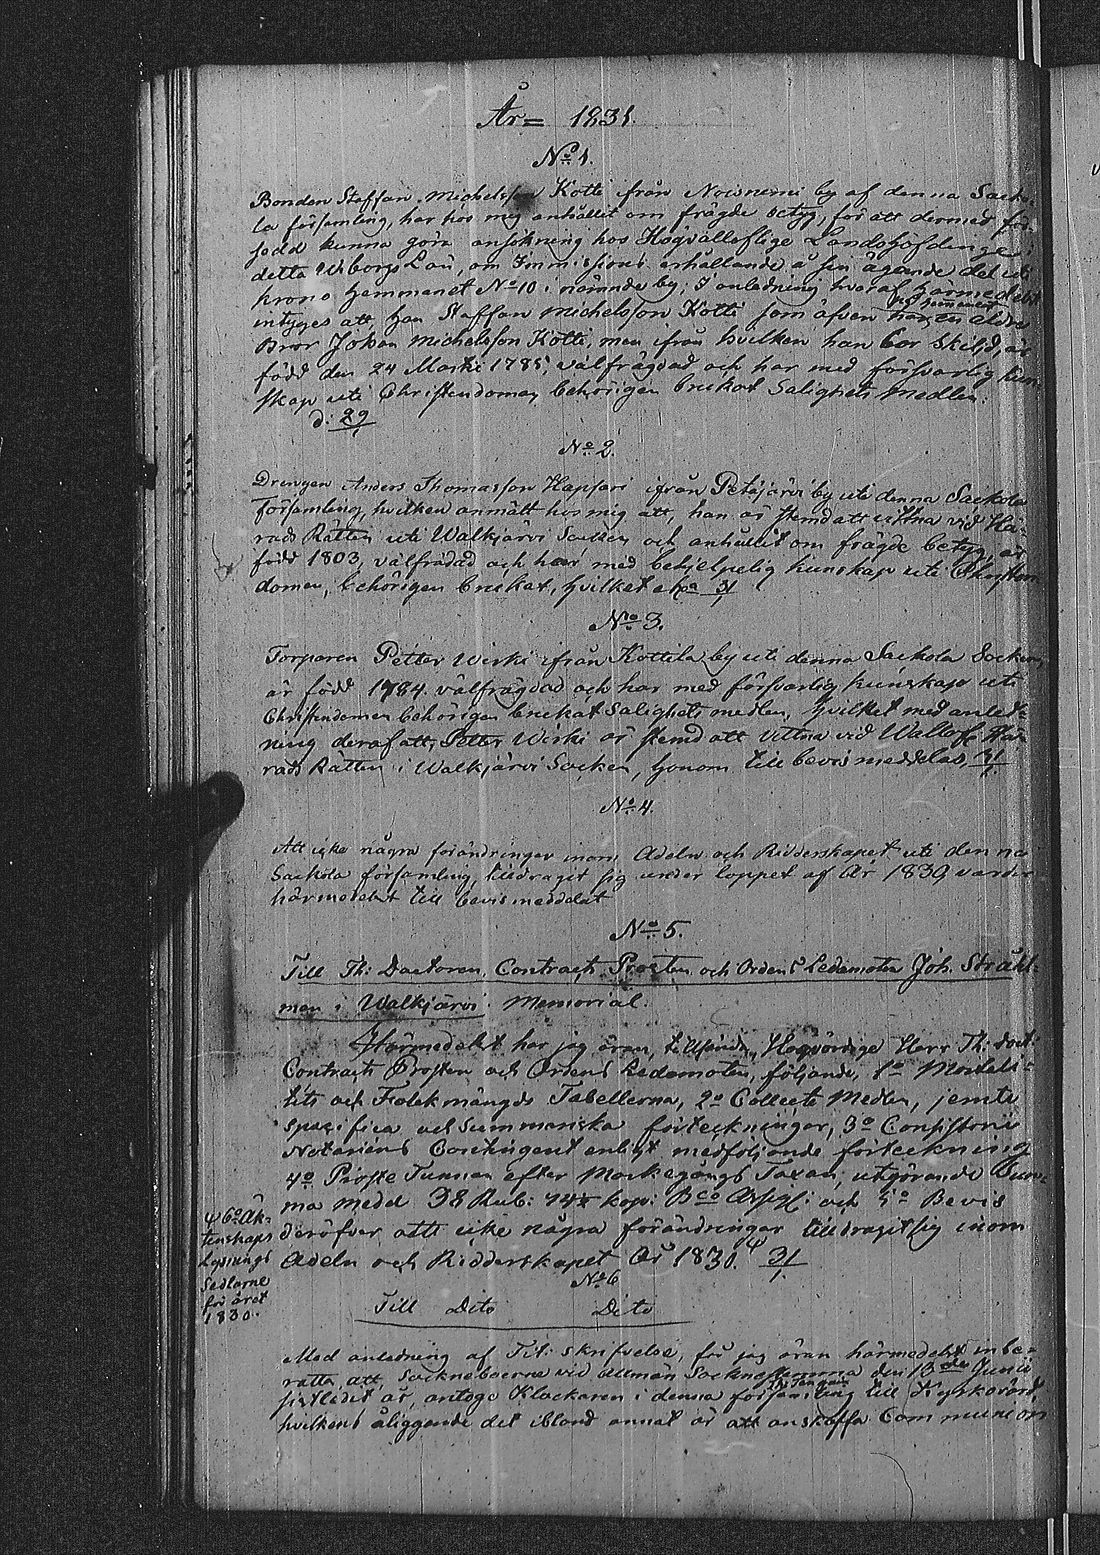 År = 1831.
No 1.
Bonden Staffan Michelsson Kotti från Noisniemi by af denna Sacko-
la församling, har hos mig anhållit om frägde betyg, för att dermed för-
sedd kunna göra ansökning hos Högvälloflige Landshöfdinge i
detta Wiborgs Län, om Immissions erhållande å sin ägande del uti
krono hemmanet No 10 i nämnde by; I anledning hvaraf härmedelst
intyges att, han Staffan Michelsson Kotti som äfven har en äldre
Bror Johan Michelsson Kotti, men ifrån hvilken han bor skiljd, är
född den 24 Martii 1785, välfrägdad och har med försvarlig kun-
skap uti Christendomen behörigen brukat Salighets medlen.
d: 29/1
No 2.
Drengen Anders Thomasson Hapsari ifrån Petäjärvi by uti denna Sackola
Församling, hvilken anmält hos mig att, han är stemd att vittna vid Hä-
rads Rätten uti Walkjärvi Socken och anhållit om frägde betyg, är
född 1803, välfrädad och har med behjelpelig kunskap uti Christen-
domen, behörigen brukat, hvilket 31/1
No 3.
Torparen Petter Wirki ifrån Kottila by uti denna Sackola Socken,
är född 1784. välfrägdad och har med försvarlig kunskap uti
Christendomen behörigen brukat Salighets medlen, hvilket med anled-
ning deraf att, Petter Wirki är stemd att vittna vid Wallofl. Hä-
rads Rätten i Walkjärvi Socken, honom till bevis meddelas, 31/1.
No 4.
Att icke några förändringar inom Adeln och Ridderskapet uti denna
Sackola församling tilldragit sig under loppet af År 1830 varder
härmedelst till bevis meddelat
No 5.
Till Th: Doctoren, Contracts Prosten och Ordens Ledamoten Joh. Stråhl-
man i Walkjärvi. Memorial.
Härmedelst har jag äran, tillsända, Högvördige Herr Th: Doct:
Contracts Prosten och Ordens Ledamoten, följande, 1o Mortali-
tets och Folkmängds Tabellerna, 2o Collecte Medlen, jemte
specifica och summariska förteckningar, 3o Consistorii
Notariens Contingent enligt medföljande förteckning
4o Proste Tunnan efter Markegångs Taxan, utgörande
ma medel 38 Rub: 74 kop: Bco Assg. och 5o Bevis
deröfver att icke några förändringar tilldragit sig inom
Adeln och Ridderskapet År 1830. φ 31/1.
φ 6o Äk-
tenskaps
Lysnings
Sedlarne
för året
1830.
No 6
Till Dito Dito
Med anledning af Tit: skrifvelse, får jag äran härmedelst inbe-
rätta att Sockneboerne vid allmän Sockne den 13de Junii
sistledit år, antoge Klockaren i denna församling till Kyrkovärd
hvilkens åliggande det ibland annat är att anskaffa Communion